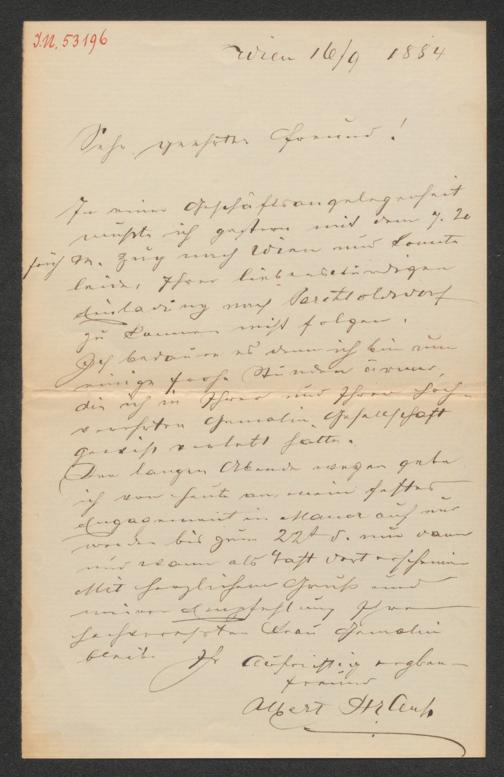 I.N. 53196
Wien 16/9 1884
Sehr geehrter Freund!
In einer Geschäftsangelegenheit
mußte ich gestern mit dem 7. 20
früh M. Zug nach Wien und konnte
leider, Ihrer liebenswürdigen
Einladung nach Perchtoldsdorf
zu kommen nicht folgen.
Ich bedaure es denn ich bin um
einige frohe Stunden ärmer,
die ich in Ihrer und Ihrer hoch-
verehrten Gemalin Gesellschaft
gewiß verlebt hätte.
Der langen Abende wegen gebe
ich von heute an mein festes
Engagement in Mauer auf und
werde bis zum 22t d. nur dann
und wann als Gast dort erscheinen
Mit herzlichem Gruß und
meiner Empfehlung Ihrer
hochverehrten Frau Gemalin
bleibe Ihr Aufrichtig ergebener
Freund
Albert